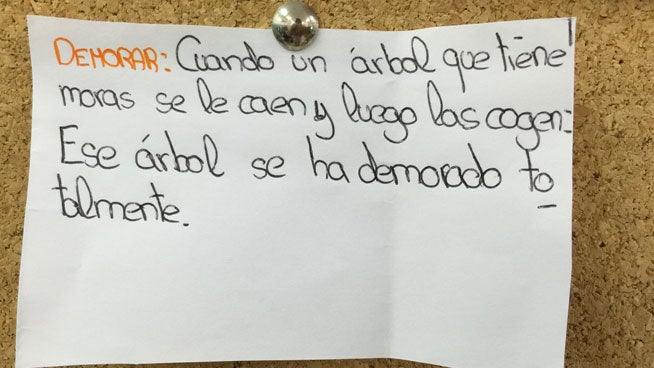 DEMORAR: Cuando un árbol que tiene
moras se le caen y luego las cogen:
Ese árbol se ha demorado to
talmente.